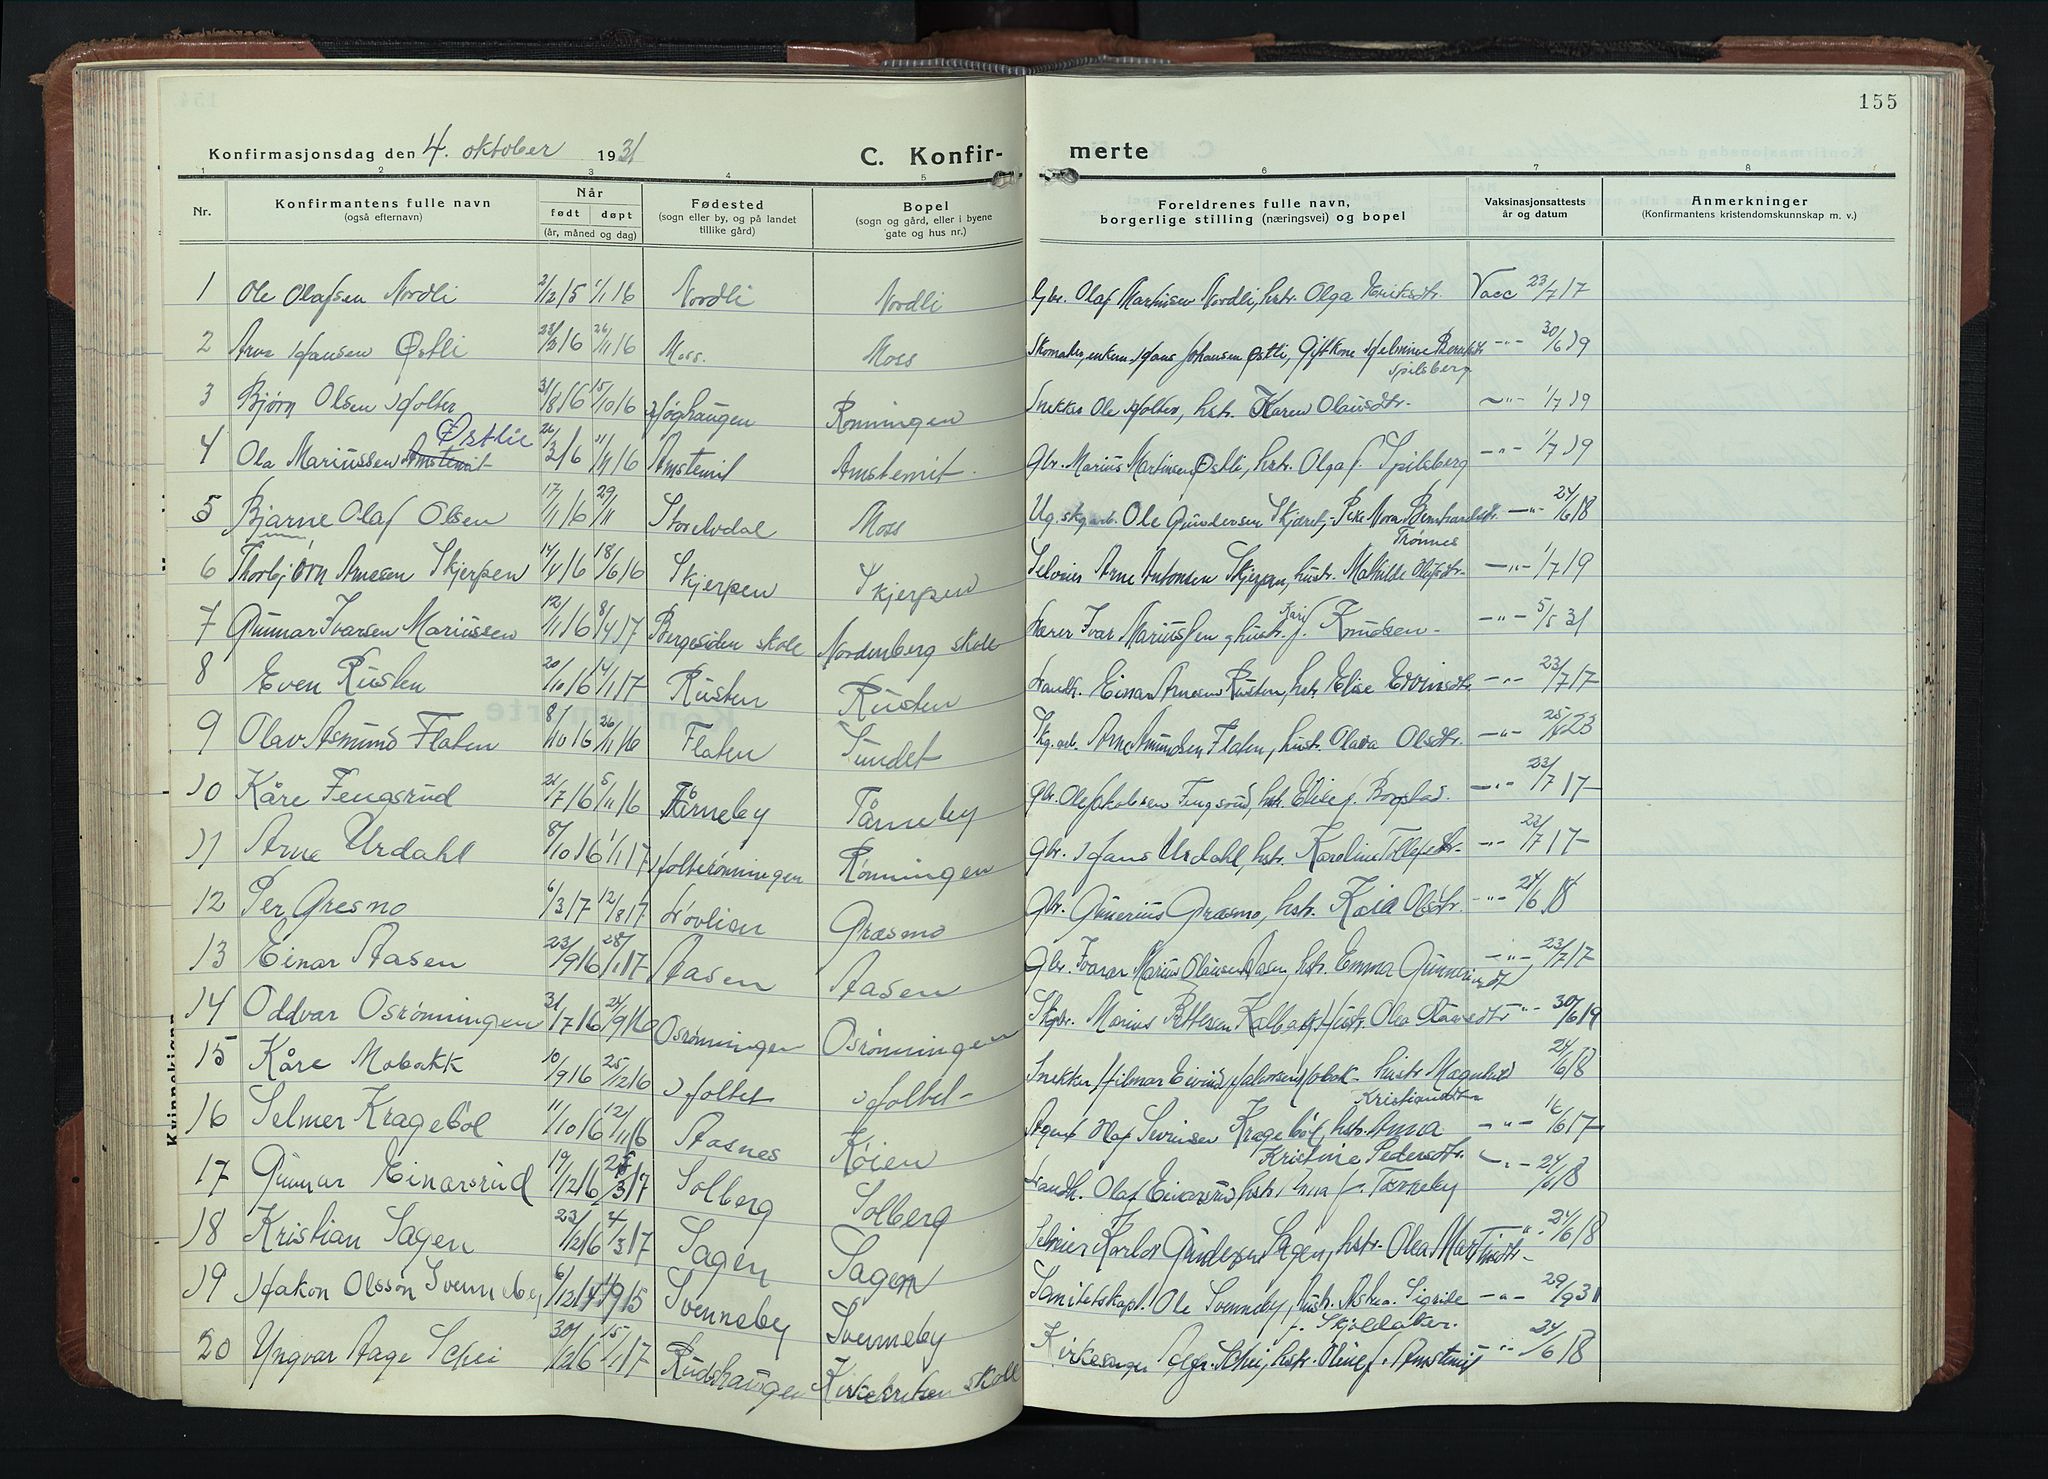 155
Konfirmasjonsdag den 4. oktober 1931 C. Konfir- merte
1 2 3 4 5 6 7 8
Nr. Konfirmantens fulle navn (også efternavn) Når født døpt (år, måned og dag) Fødested (sogn eller by, og på landet tillike gård) Bopel (sogn og gård, eller i byene gate og hus nr.) Foreldrenes fulle navn, borgerlige stilling (næringsvei) og bopel Vaksinasjonsattests år og datum Anmerkninger (Konfirmantens kristendomskunnskap m. v.)
1 Ole Olafsen Nordli 2/12 15 1/1 16 Nordli Nordli Gbr. Olaf Martinsen Nordli, hstr. Olga Eriksdtr. Vacc 23/7 17
2 Arve Hansen Østli 16 26/11 16 Moss. Moss Hans Johansen Østli, Gift kone Helmine Spilsberg -"- 30/6 19
3 Bjørn Olsen Holter 31/8 16 15/10 16 Høghaugen Rønningen Snekker Ole Holter, hstr. Karen Olausdtr. -"- 1/7 19
4 Ola Mariussen Amsternit Østlie 26/3 16 11/11 16 Amstemit Amstemit Gbr. Marius Martinsen Østli, hstr. Olga f. Spilsberg -"- 1/7 19
5 Bjarne Olaf Olsen 17/11 16 29/11 Storelvdal Moss Ug. skg.arb. Ole Gundersen Skjæret, - Pike Nora Trønnes -"- 24/6 18
6 Thorbjørn Arnesen Skjerpen 14/4 16 18/6 16 Skjerpen Skjerpen Selveier Arne Antonsen Skjerpen, hustr. Mathilde Olufsdtr. -"- 1/7 19
7 Gunnar Ivarsen Mariussen 12/11 16 8/4 17 Bergesiden skole Nordenberg skole Lærer Ivar Mariussen, hustr. Kari f. Knudsen - -"- 5/5 31
8 Even Rusten 20/10 16 14/1 17 Rusten Rusten Landh. Einar Arnesen Rusten, hstr. Elise Evensdtr. -"- 23/7 17
9 Olav Asmund Flaten 8/10 16 26/11 16 Flaten Sundet Skg. arb. Arne Amundsen Flaten, hustr. Olava Olsdtr. -"- 23
10 Kåre Fengsrud 21/7 16 5/11 16 Tårneby Tårneby Gbr. Ole Jakobsen Fengsrud, hstr. Elise f. Bogstad. -"- 23/7 17
11 Arne Urdahl 8/10 16 1/1 17 Holterønningen Rønningen Gbr. Hans Urdahl, hstr. Karoline Tollefsdtr. -"- 23/7 17
12 Per Gresmo 6/3 17 12/8 17 Løvlien Græsmo Gbr. Gunerius Græsmo, hstr. Kaia Olsdtr. -"- 24/6 18
13 Einar Aasen 23/9 16 28/1 17 Aasen Aasen Gbr. Marius Olausen Aasen, hstr. Emma -"- 23/7 17
14 Oddvar Osrønningen 31/7 16 24/9 16 Osrønningen Osrønningen Marius Pettersen hustr. Olea -"- 30/6 19
15 Kåre Mobakk 10/9 16 25/12 16 Holtet Holtet Snekker Hilmar Eivind Halvorsen Mobak - hustr. Magnhild Kristiansdtr. 24/6 18
16 Selmer Kragebøl 11/10 16 12/11 16 Aasnes Køien Agent Olaf Kragebøl, hstr. Anna Kristine Pedersdtr. -"- 16/6 17
17 Gunnar Einarsrud 19/12 16 25/3 17 Solberg Solberg Landh. Olaf Einarsrud hstr. f. Torneby -"- 24/6 18
18 Kristian Sagen 23/12 16 4/3 17 Sagen Sagen Selveier Karl Gundersen Sagen, hstr. Olea Martinsdtr. -"- 24/6 18
19 Hakon Olsson Svenneby 6/12 14 15 Svenneby Svenneby Sanitetskapt. Ole Svenneby, hustr. Astrea Sigride f. Skjoldåker. -"- 29/9 31
20 Yngvar Aage Schei 30/12 16 15/1 17 Rudshaugen Kirkekretsen skole Kirkesanger Aage Schei, hstr. Oline f. Amstemit -"- 24/6 18